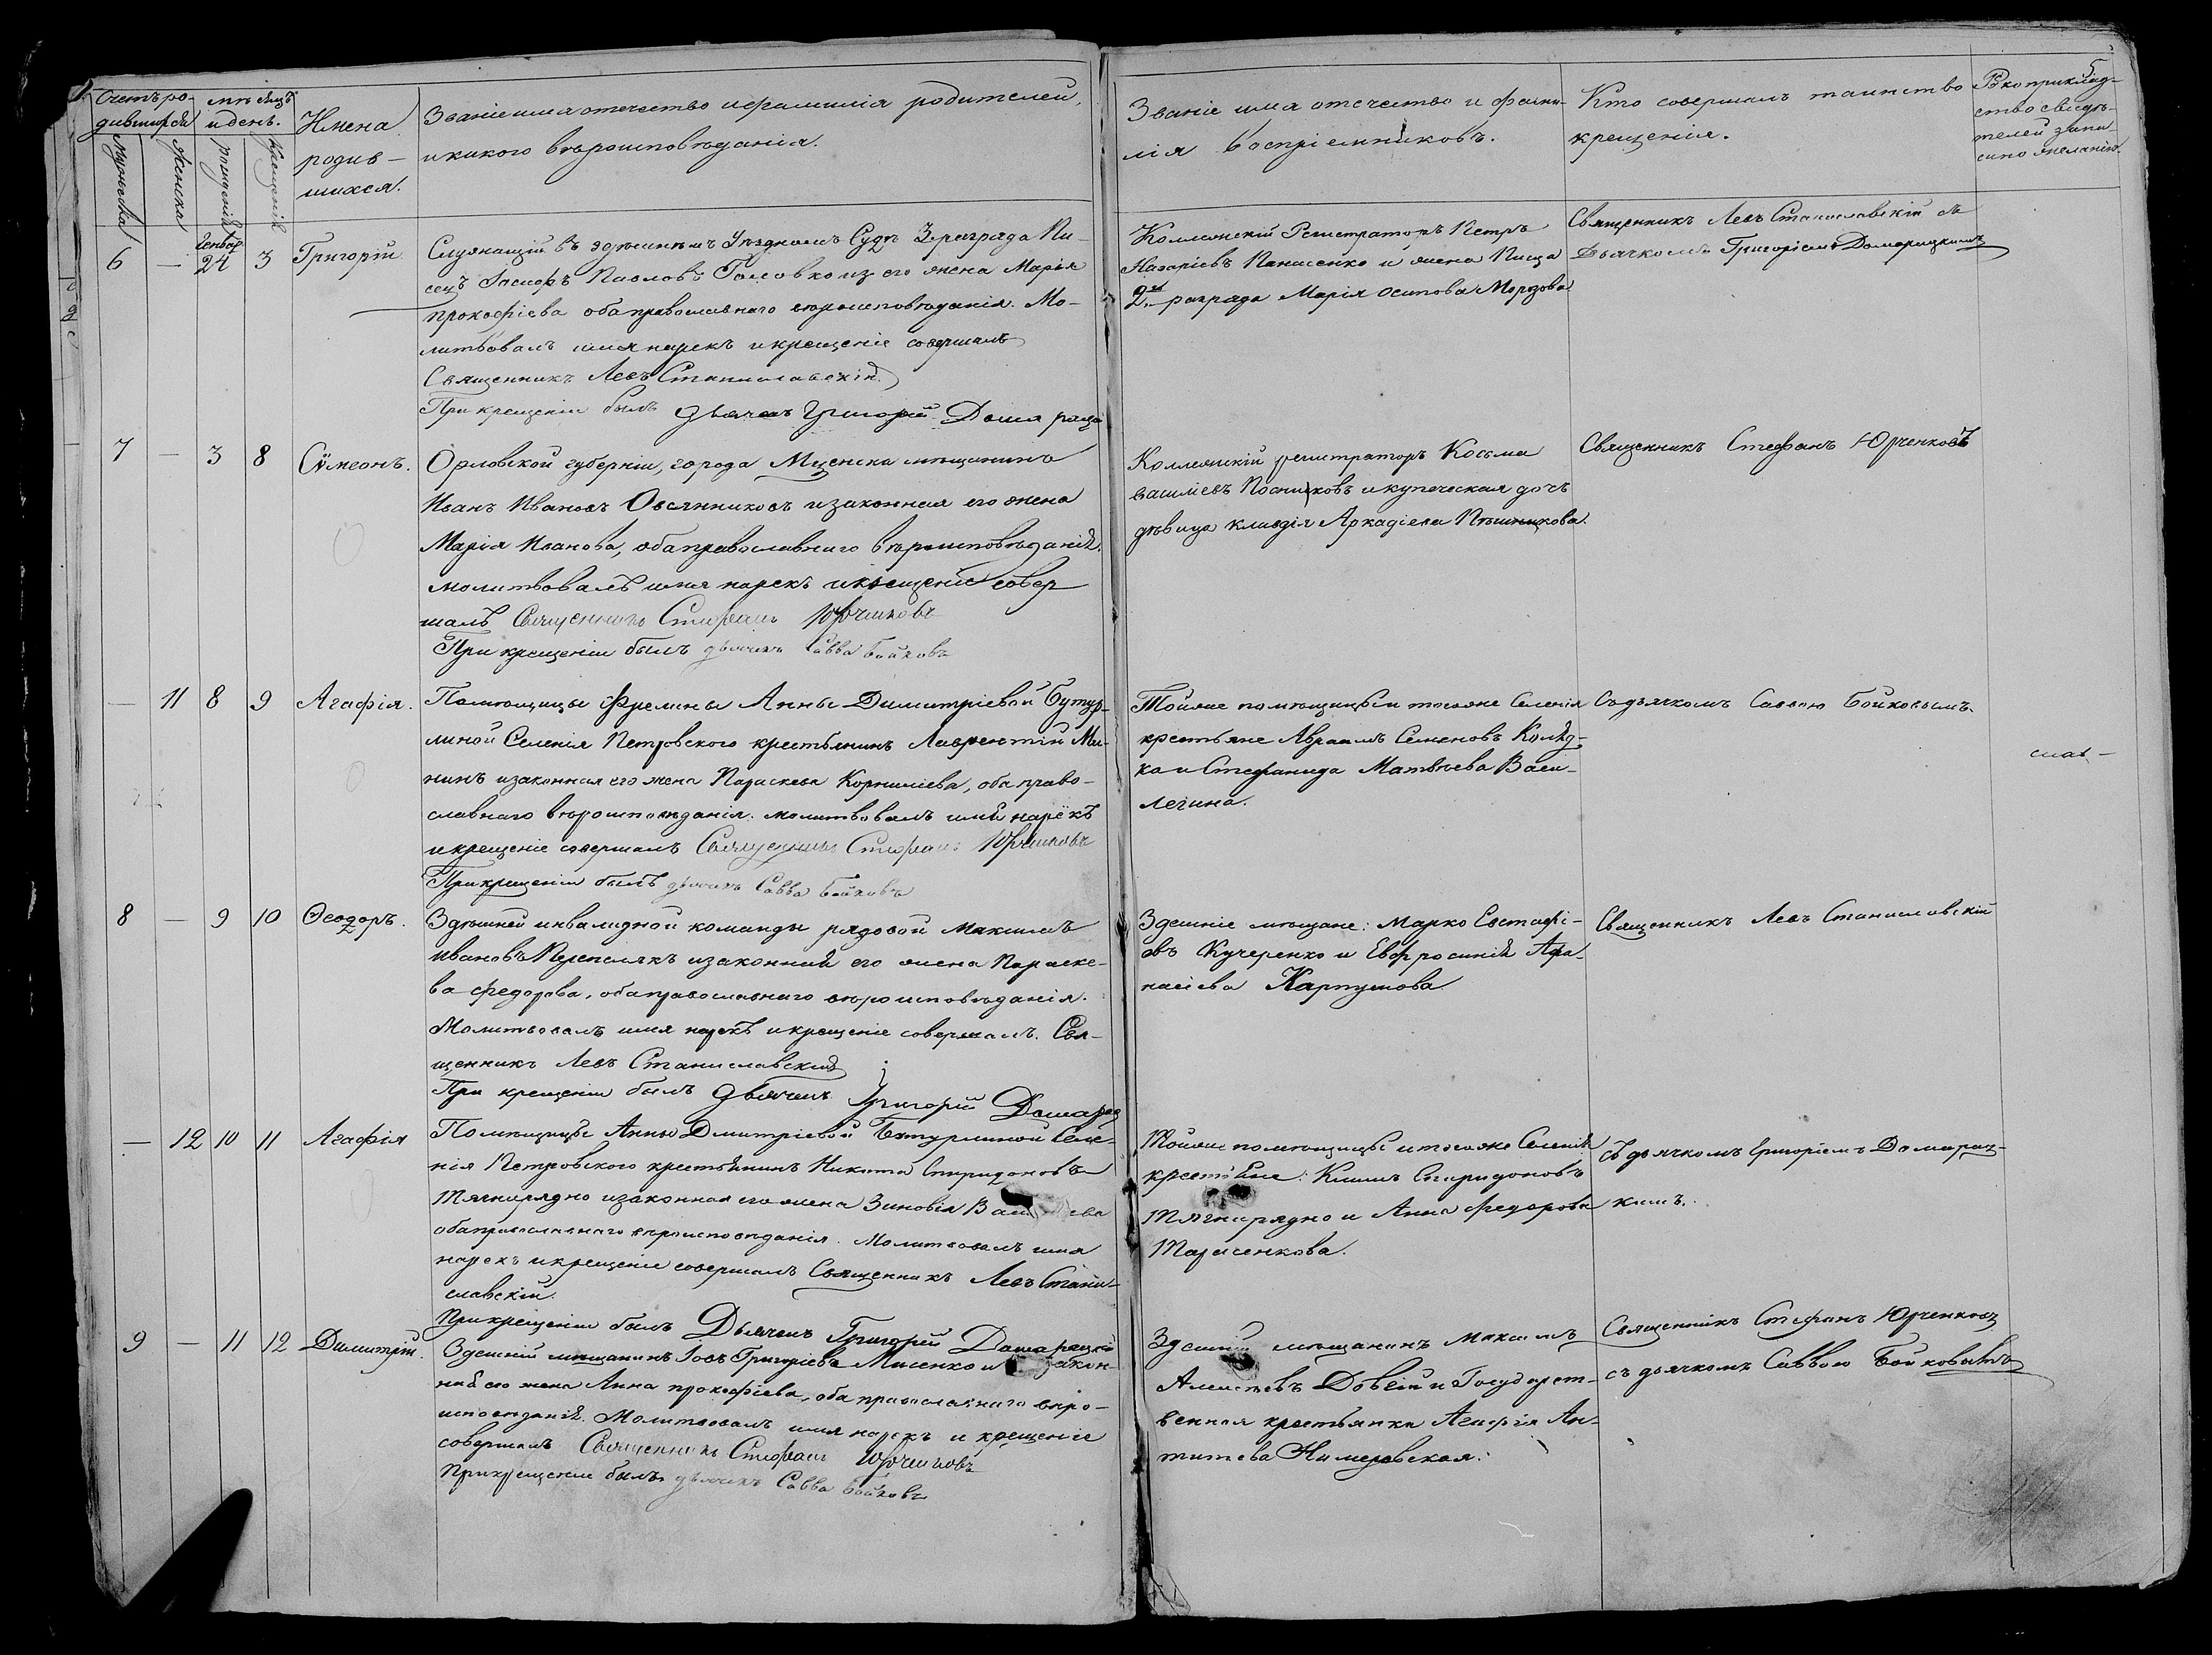 Счетъ ро-
дившихся
мѣсяцъ
и день.
Имена
родив-
шихся.
Званіе имя отечество и фамилія родителей,
и какого вѣроисповѣданія.
Мужеска
Женска
рожденія
крещенія
6 — Генвар 24 3 Григорій
Служащій въ здѣшнемъ Уѣздномъ Судѣ 3. разряда Пи-
сецъ Павловъ Головко и его жена Марія
прокофіева оба православнаго вѣроисповѣданія. Мо-
литвовалъ имя нарекъ и крещеніе совершалъ
Священникъ Левъ Станиславскій
При крещеніи былъ дьячекъ Григорій
7 — 3 8 Сѵмеонъ.
Орловской губерніи, города Мценска мѣщанинъ
Иванъ Ивановъ Овсянниковъ и законная его жена
Марія Иванова, оба православнаго вѣроисповѣданія.
молитвовалъ имя нарекъ и крещеніе совер
шалъ Священникъ Стефанъ Юрченковъ
При крещеніи былъ дьячекъ Савва Бойковъ
— 11 8 9 Агафія.
Помѣщицы Фрейлины Анны Димитріевой Бутур-
линой Селенія Петровского крестьянинъ Лаврентій Ми-
нинъ и законная его жена Параскева Корниліева, оба право-
славнаго вѣроисповѣданія. молитвовалъ имя нарекъ
и крещеніе совершалъ Священникъ Стефанъ Юрченковъ
При крещеніи былъ дьячекъ Савва Бойковъ
8 — 9 10 Ѳеодоръ.
Здѣшней инвалидной команды рядовой Максимъ
Ивановъ Перепелякъ и законная его жена Параске-
ва Федорова, оба православнаго вѣроисповѣданія.
Молитвовалъ имя нарекъ и крещеніе совершалъ. Свя-
щенникъ Левъ Станиславскій
При крещеніи былъ дьячекъ Григорій
— 12 10 11 Агафія
Помѣщицы Анны Дмитріевой Бутурлиной Селе-
нія Петровского крестьянинъ Никита Спиридоновъ
Тягнирядно и законная его жена Зиновія
оба православнаго вѣроисповѣданія. Молитвовалъ имя
нарекъ и крещеніе совершалъ Священникъ Левъ Стани-
славскій.
При крещеніи былъ Дьячекъ Григорій
9 — 11 12 Димитрій.
Здешній мѣщанинъ Іовъ Григоріевъ Мисенко и закон-
ная его жена Анна прокофіева, оба православнаго вѣро-
исповѣданія. Молитвовалъ имя нарекъ и крещеніе
совершалъ Священникъ Стефанъ Юрченковъ
При крещеніи былъ дьячекъ Савва Бойковъ
5
Званіе имя отечество и фами-
лія воспріемниковъ.
Кто совершалъ таинство
крещенія.
Рукоприклад-
ство свидѣ-
телей запи-
си по желанію.
Коллежскій Регистраторъ Петръ
Назаріевъ Панасенко и жена Писца
2го разряда Марія Осипова Морозова
Священникъ Левъ Станиславскій съ
Дьячкомъ Григоріемъ Домарацкимъ
Коллежскій регистраторъ Косьма
васильевъ и купеческая дочь
дѣвица клавдія Аркадіева
Священникъ Стефанъ Юрченковъ
Тойже помѣщицы и тогоже Селенія
крестьяне Авраамъ Семеновъ
ка и Стефанида Матвѣева
Съ дьячкомъ Саввою Бойковымъ.
Здешніе мѣщане: Марко Евстафі-
евъ Кучеренко и Евфросинія Афа-
насіева Карпушова
Священникъ Левъ Станиславскій
Тойже помѣщицы и тогоже Селенія
крестьяне: Климъ Спиридоновъ
Тягнирядно и Анна Федорова
Тарасенкова.
Съ дьячкомъ Григоріемъ Домарац-
кимъ.
Здешній мѣщанинъ Максимъ
Алексѣевъ и Государст-
венная крестьянка Агафія Ан-
типева
Священникъ Стефанъ Юрченковъ
съ дьячкомъ Саввою Бойковымъ